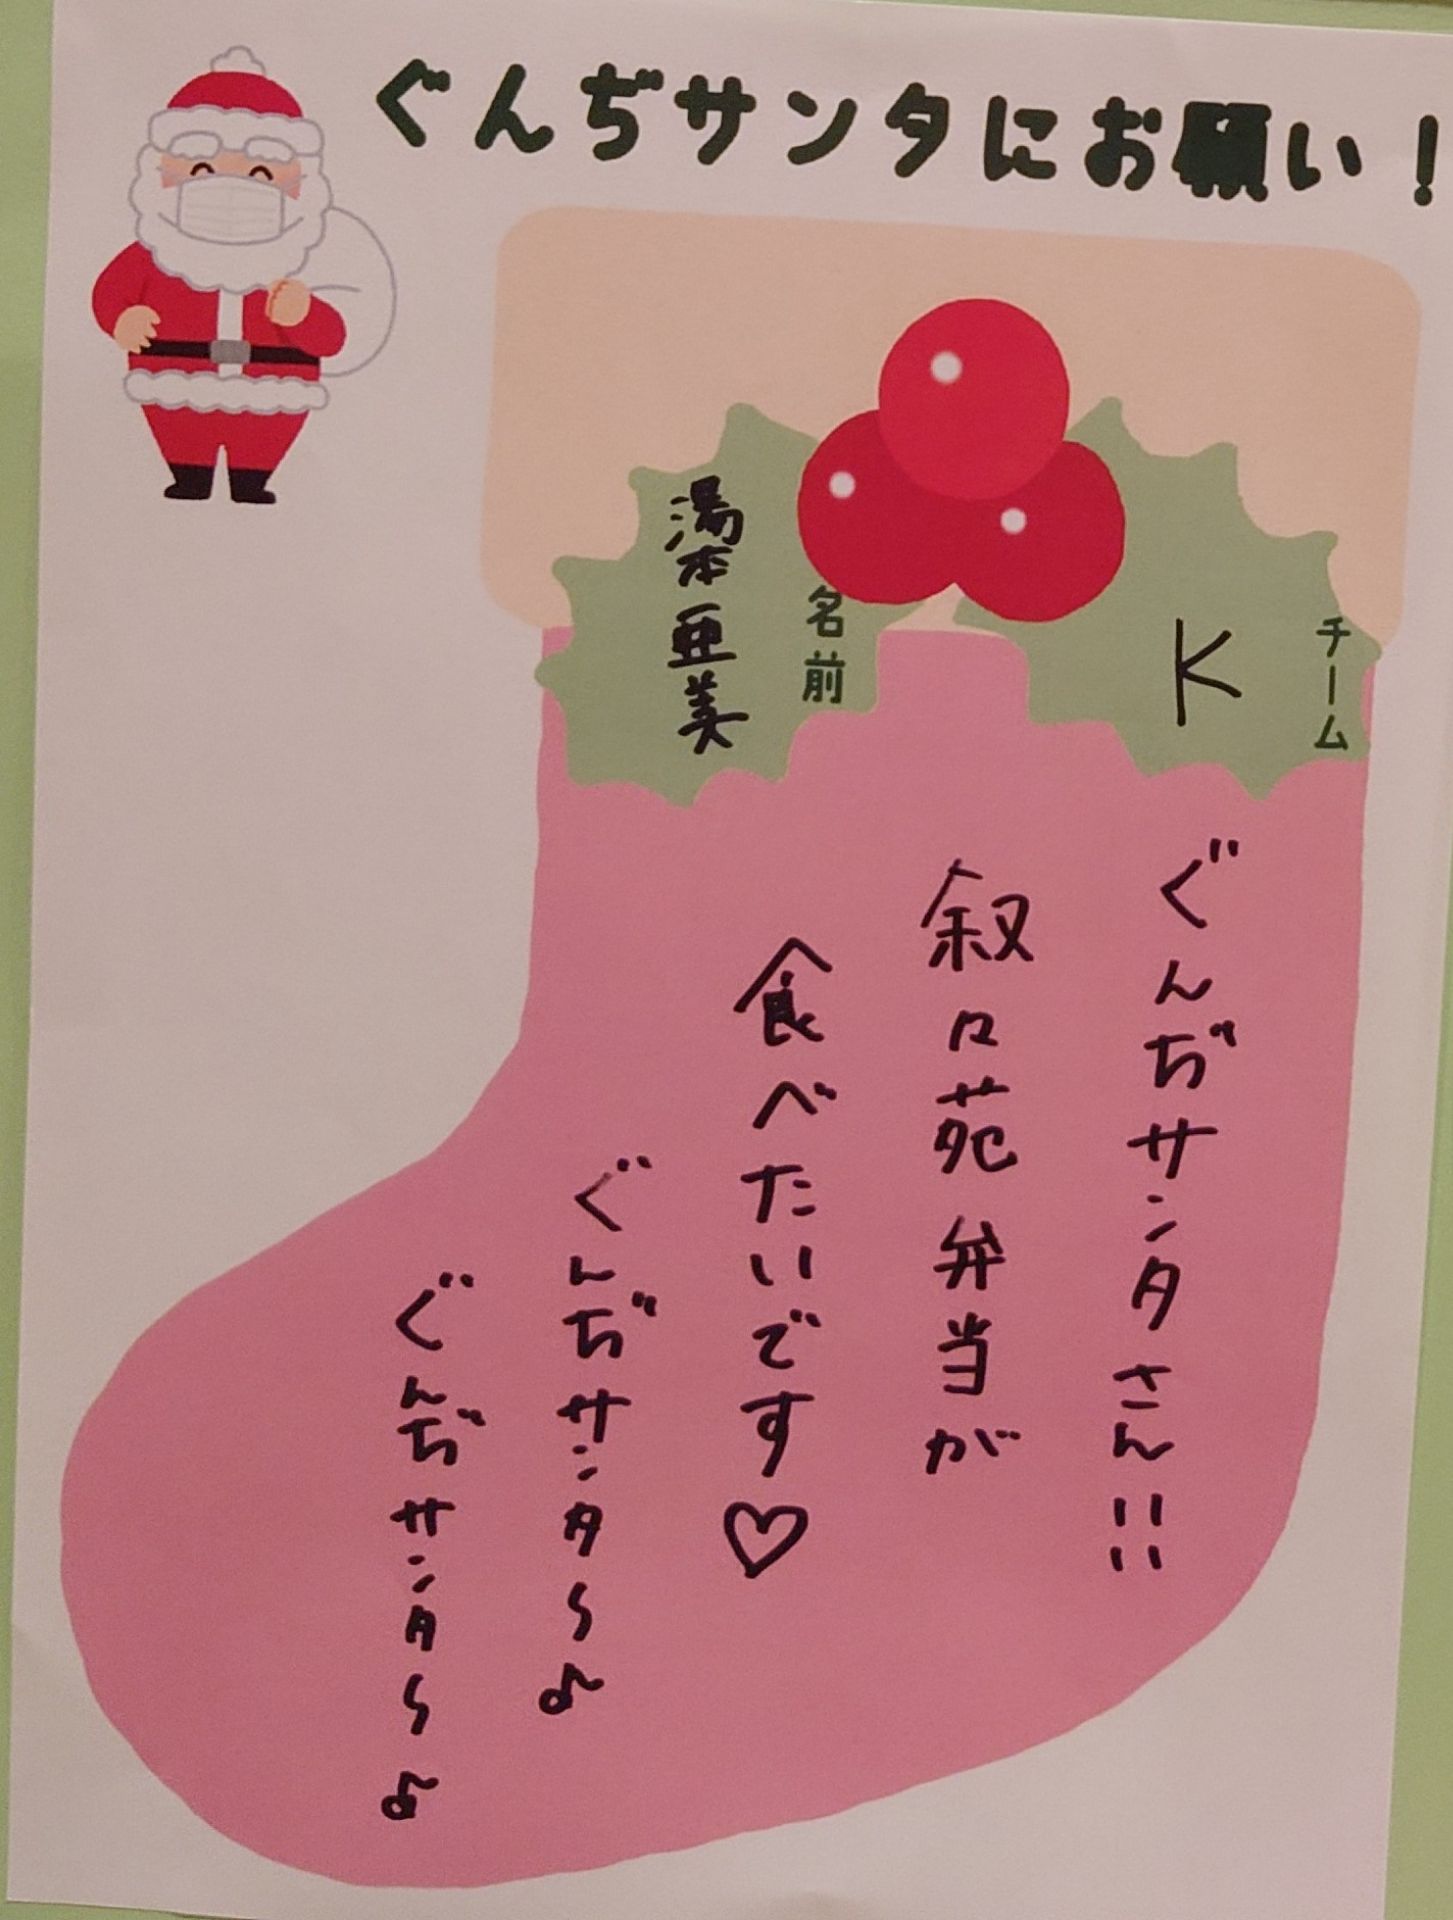 ぐんぢサンタにお願い！
チーム
K
名前
湯本亜美
ぐんぢサンタさん!!
叙々苑弁当が
食べたいです♡
ぐんぢサンタ〜♪
ぐんぢサンタ〜♪